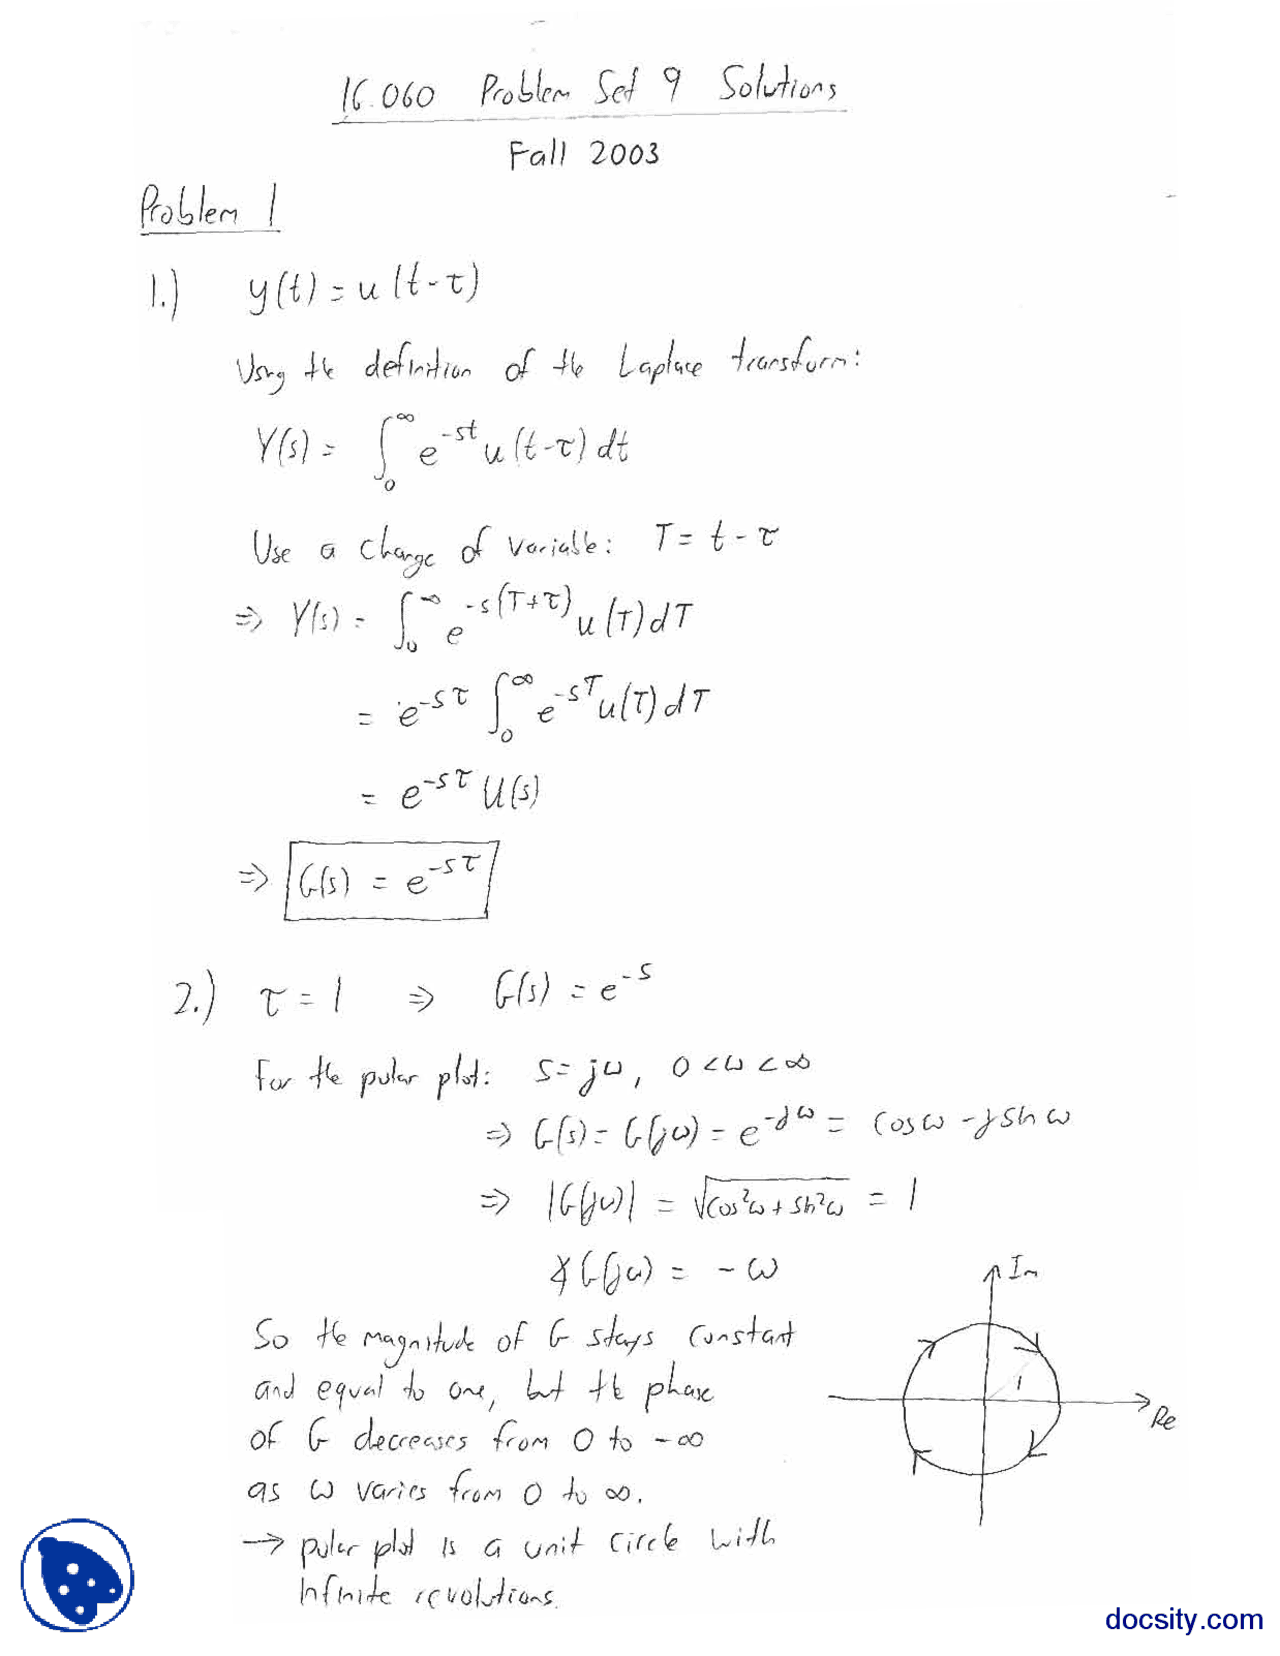 16.060 Problem Set 9 Solutions
Fall 2003
Problem 1
1.) y(t) = u(t-τ)
Using the definition of the Laplace transform:
Y(s) = ∫₀^∞ e^{-st} u(t-τ) dt
Use a change of variable: T = t - τ
⇒ Y(s) = ∫₀^∞ e^{-s(T+τ)} u(T) dT
= e^{-sτ} ∫₀^∞ e^{-sT} u(T) dT
= e^{-sτ} U(s)
⇒ G(s) = e^{-sτ}
2.) τ = 1 ⇒ G(s) = e^{-s}
For the polar plot: s = jω, 0 < ω < ∞
⇒ G(s) = G(jω) = e^{-jω} = cosω - jsinω
⇒ |G(jω)| = √(cos²ω + sin²ω) = 1
∡G(jω) = -ω
Im
So the magnitude of G stays constant
and equal to one, but the phase
1
Re
of G decreases from 0 to -∞
as ω varies from 0 to ∞.
→ polar plot is a unit circle with
infinite revolutions.
docsity.com